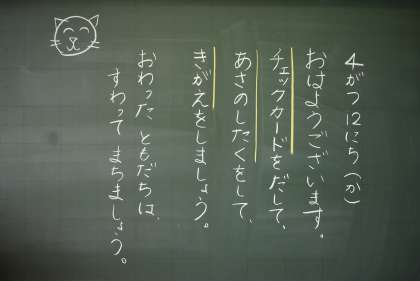 4がつ12にち(か)
おはようございます。
チェックカードをだして、
あさのしたくをして、
きがえをしましょう。
おわった ともだちは、
すわって まちましょう。